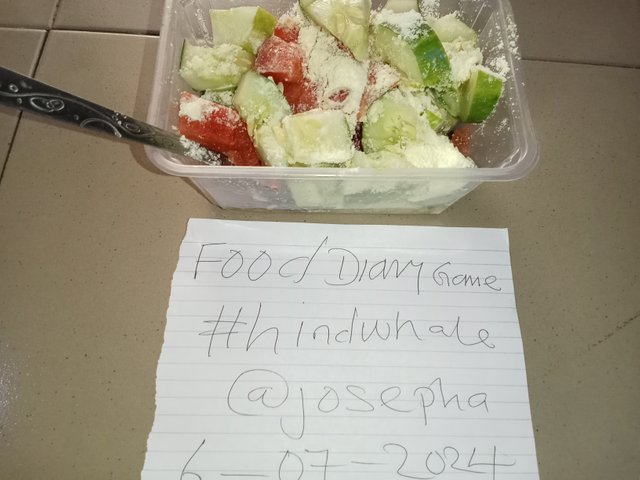 Food Diary Game
#hindwhale
@josepha
6-07-2024